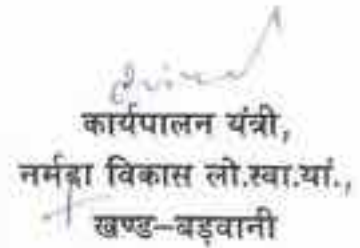 कार्यपालन यंत्री,
नर्मदा विकास लो.स्वा.यां.,
खण्ड–बड़वानी